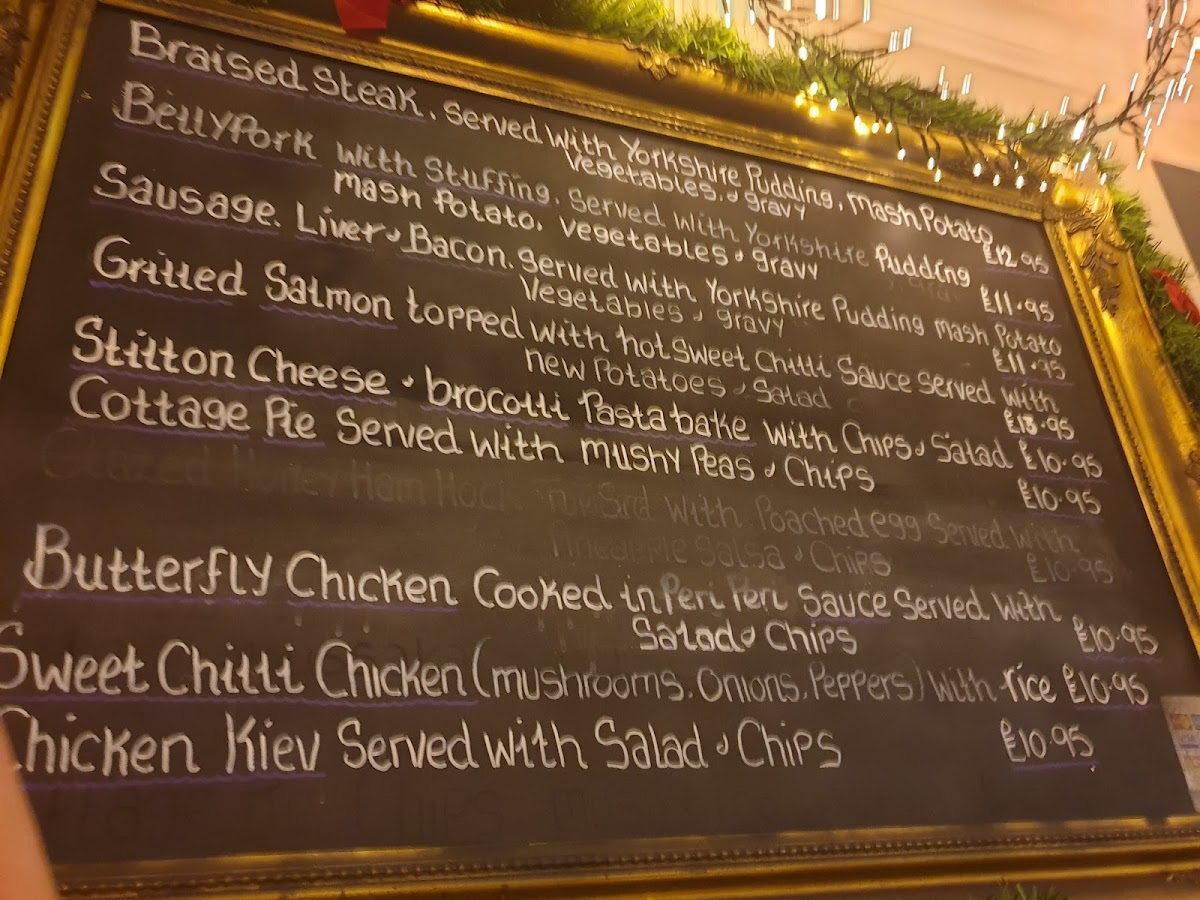 Braised Steak. Served with Yorkshire Pudding, Mash Potato
Vegetables, & gravy £12.95
Belly Pork with Stuffing. Served with Yorkshire Pudding
Mash Potato, Vegetables & gravy £11.95
Sausage. Liver & Bacon. Served with Yorkshire Pudding Mash Potato
Vegetables & gravy £11.95
Grilled Salmon topped with hot Sweet Chilli Sauce Served with
new Potatoes & Salad £13.95
Stilton Cheese & brocolli Pasta bake with Chips & Salad £10.95
Cottage Pie Served with mushy Peas & Chips £10.95
Glazed Honey Ham Hock with Poached egg Served with
Pineapple Salsa & Chips £10.95
Butterfly Chicken Cooked in Peri Peri Sauce Served with
Salad & Chips £10.95
Sweet Chilli Chicken (mushrooms, Onions, Peppers) with rice £10.95
Chicken Kiev Served with Salad & Chips £10.95